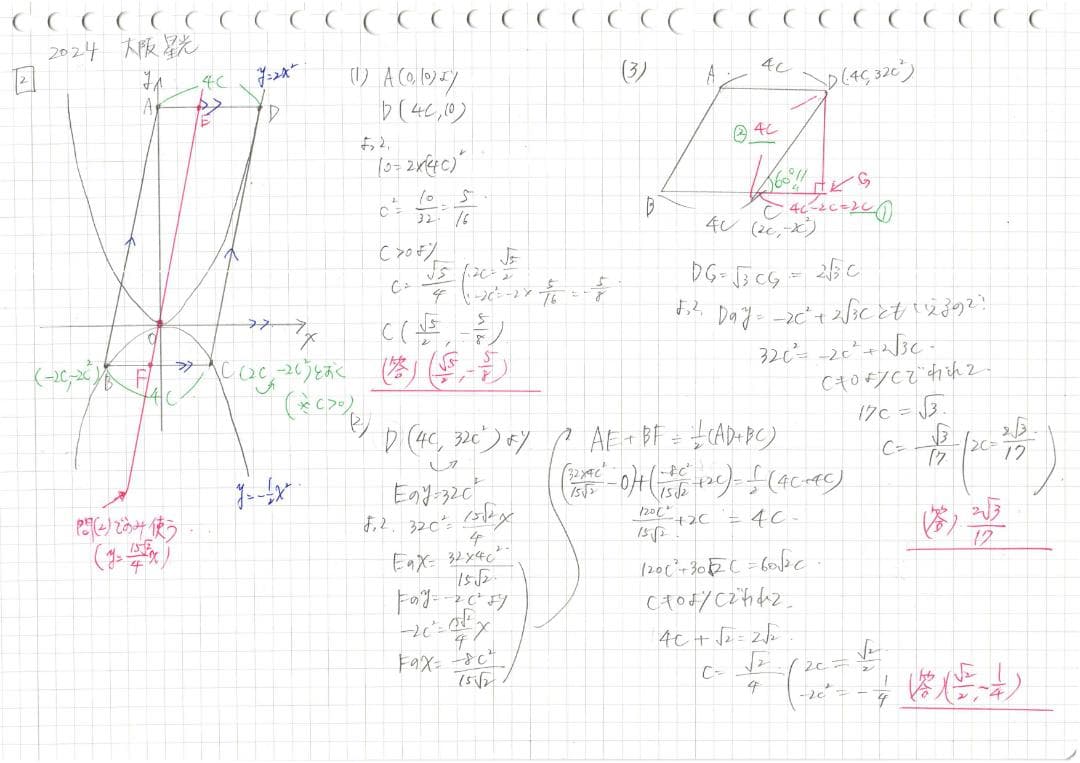 2024 大阪星光
2
y
4C
y=2x²
A
E
D
O
x
(-2C,-2C²)
B
F
C (2C,-2C²)とおく
4C
(※C>0)
y=-1/2x²
問(2)でのみ使う
(y=15√2/4 x)
(1) A(0,10)より
D(4C,10)
よって、
10=2×(4C)²
C²=10/32=5/16
C>0より
C=√5/4 (2C=√5/2
-2C²=-2×5/16=-5/8
C(√5/2,-5/8)
(答)(√5/2,-5/8)
(2)
D(4C,32C²)より
Eのy=32C²
よって、32C²=15√2/4 x
Eのx=32×4C²/15√2
Fのy=-2C²より
-2C²=15√2/4 x
Fのx=-8C²/15√2
AE+BF=1/2(AD+BC)
(32×4C²/15√2-0)+(-8C²/15√2+2C)=1/2(4C+4C)
120C²/15√2+2C=4C
120C²+30√2C=60√2C
C≠0よりCでわれて、
4C+√2=2√2
C=√2/4 (2C=√2/2
-2C²=-1/4
(答)(√2/2,-1/4)
(3)
A
4C
D(4C,32C²)
② 4C
60°
G
B
C
4C-2C=2C ①
4C
(2C,-2C²)
DG=√3CG=2√3C
よって、Dのy=-2C²+2√3Cともいえるので
32C²=-2C²+2√3C
C≠0よりCでわれて、
17C=√3
C=√3/17 (2C=2√3/17)
(答) 2√3/17